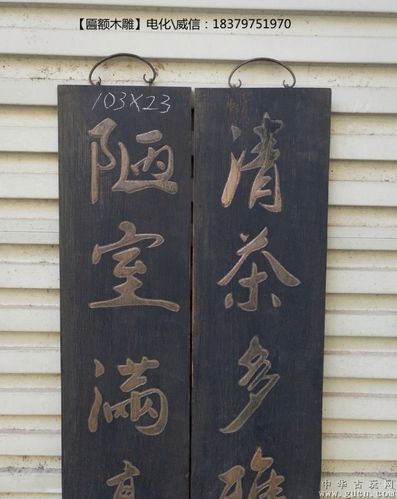 【匾额木雕】电化\威信：18379751970
103X23
清茶多雅
陋室满
中华古玩网
www.gucn.com